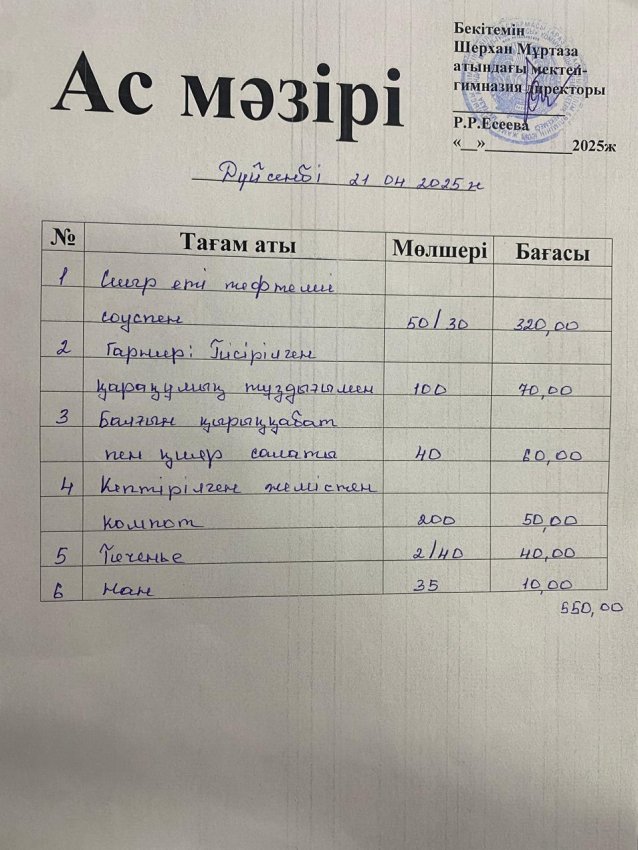 Бекітемін
Шерхан Мұртаза
атындағы мектеп-
гимназия директоры
Р.Р.Есеева
«__»___________2025ж
Ас мәзірі
Дүйсенбі 21 04 2025 ж
№ Тағам аты Мөлшері Бағасы
1 Сиыр еті тефтелиі
соуспен 50/30 320,00
2 Гарнир: Пісірілген
қарақұмық тұздығымен 100 70,00
3 Балғын қырыққабат
пен қияр салаты 40 60,00
4 Кептірілген жемістен
компот 200 50,00
5 Печенье 2/40 40,00
6 Нан 35 10,00
550,00